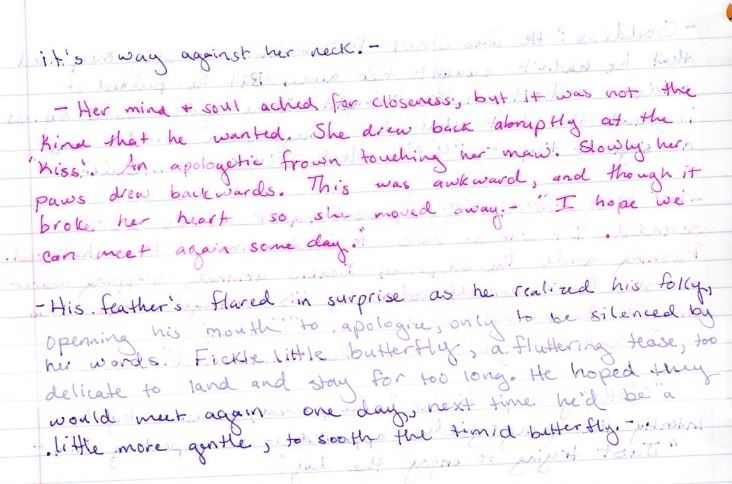 it's way against her neck.-
- Her mind + soul ached for closeness, but it was not the
kind that he wanted. She drew back abruptly at the
"kiss". An apologetic frown touching her maw. Slowly her
paws drew backwards. This was awkward, and though it
broke her heart so, she moved away.- "I hope we
can meet again some day."
-His feather's flared in surprise as he realized his folly,
openning his mouth to apologize, only to be silenced by
her words. Fickle little butterfly, a fluttering tease, too
delicate to land and stay for too long. He hoped they
would meet again one day, next time he'd be a
little more gentle, to sooth the timid butterfly.-